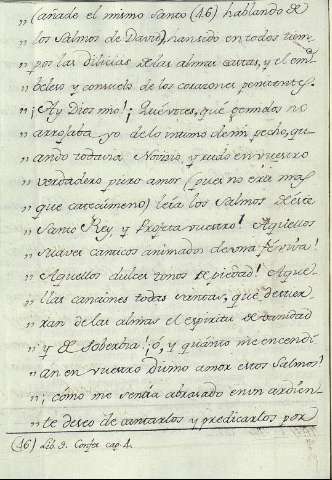 „ (añade el mismo Santo (46) hablando de
„ los Salmos de David) han sido en todos tiem-
„ pos las delicias de las almas castas, y el em-
„ beleso y consuelo de los corazones penitentes.
„ ¡Ay Dios mio! ¡Qué voces, qué gemidos no
„ arrojaba yo de lo intimo de mi pecho, qu-
„ ando todavia Novicio, y rudo en vuestro
„ verdadero puro amor (pues no era mas
„ que catecumeno) leía los Salmos de este
„ Santo Rey y Profeta vuestro! Aquellos
„ suaves canticos animados de una fé viva!
„ Aquellos dulces tonos de piedad! Aque-
„ llas canciones todas santas, que destier-
„ ran de las almas el espiritu de vanidad
„ y de soberbia! ¡ó, y quánto me encendi-
„ an en vuestro divino amor estos Salmos!
„ ¡cómo me sentia abrasado en un ardien-
„ te deseo de cantarlos y predicarlos por
(46) Lib. 9. Confes. cap. 4.